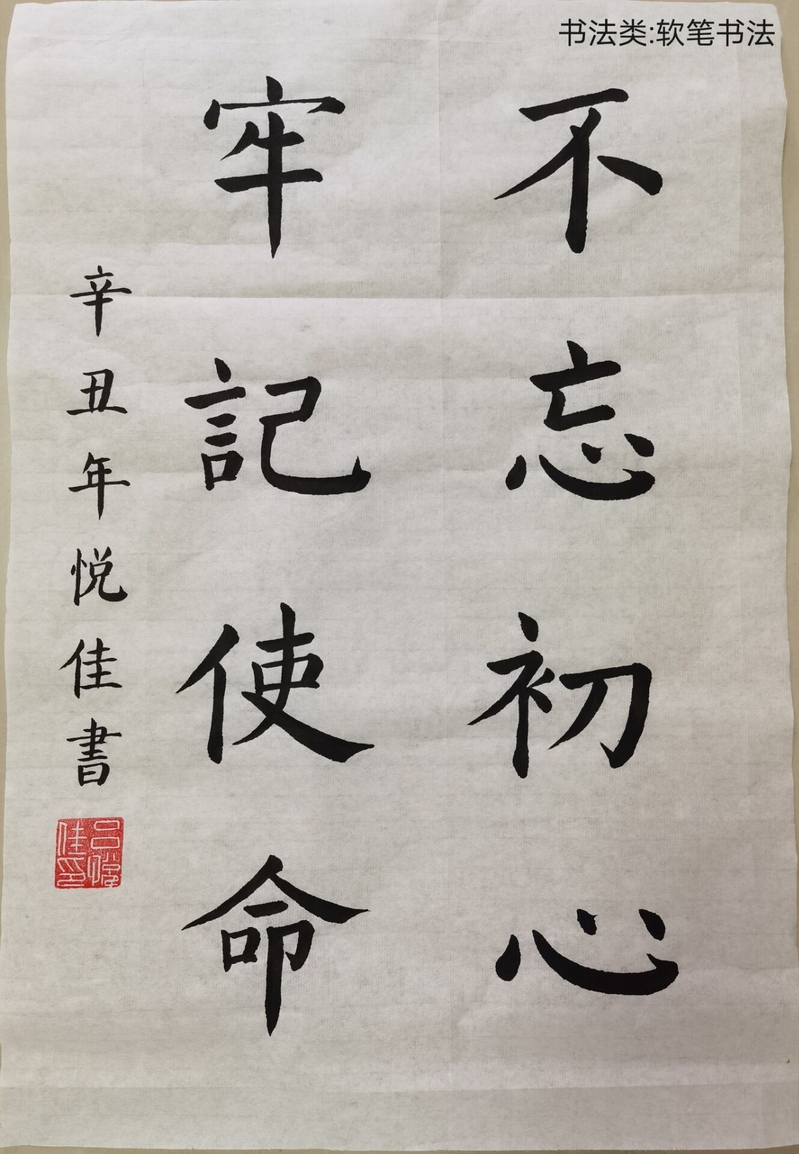 书法类:软笔书法
不忘初心
牢記使命
辛丑年悦佳書
吕悦佳印